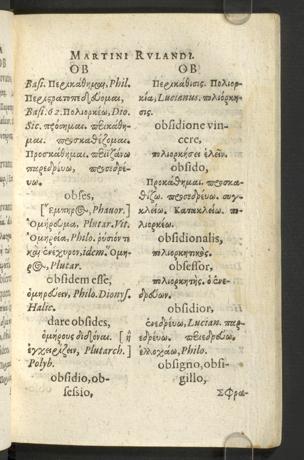 MARTINI RVLANDI.
OB
Basi. Περικάθημαι, Phil.
Περιστρατοπεδεύομαι,
Basi. 62. Πολιορκέω, Dio.
Sic.
Προσκάθημαι.
παρεδρεύω,
obses,
Phauor.]
Ὁμήρευμα, Plutar. Vit.
Ὁμηρεία, Philo.
καὶ ἐνέχυρον, idem. Ὅμη-
ρος, Plutar.
obsidem esse,
ὁμηρεύειν, Philo. Dionys.
Halic.
dare obsides,
ὁμήρους διδόναι. [ἢ
ἐγχειρίζειν, Plutarch.]
Polyb.
obsidio, ob-
sessio,
OB
Περικάθισις. Πολιορ-
κία, Lucianus. πολιόρκη-
σις.
obsidione vin-
cere,
πολιορκήσει ἑλεῖν.
obsido,
Προκάθημαι.
κλείω. Κατακλείω. πο-
λιορκέω.
obsidionalis,
πολιορκητικός.
obsessor,
πολιορκητής. ὁ ἐνε-
δρεύων.
obsidior,
ἐνεδρεύω, Lucian. παρ-
εδρεύω.
ἐλλοχάω, Philo.
obsigno, obsi-
gillo,
ΣΦρα-